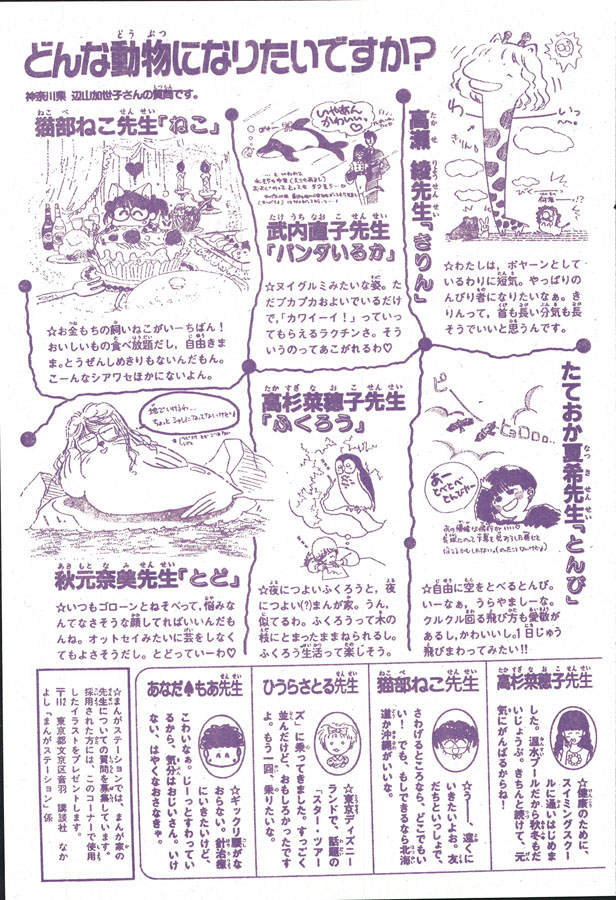 どんな動物になりたいですか?
神奈川県 辺山加世子さんの質問です。
猫部ねこ先生「ねこ」
☆お金もちの飼いねこがいーちばん!
おいしいもの食べ放題だし、自由きま
ま。とうぜんしめきりもないんだもん。
こーんなシアワセほかにないよん。
いやぁん
かわいい〜
武内直子先生
「パンダいるか」
☆ヌイグルミみたいな姿。た
だプカプカおよいでいるだけ
で、「カワイーイ!」っていっ
てもらえるラクチンさ。そう
いうのってあこがれるわ♡
高瀬綾先生「きりん」
きりん
☆わたしは、ボヤーンとして
いるわりに短気。やっぱりの
んびり者になりたいなぁ。き
りんって、首も長い分気も長
そうでいいと思うんです。
秋元奈美先生「とど」
☆いつもゴローンとねそべって、悩みな
んてなさそうな顔してればいいんだも
んね。オットセイみたいに芸をしなくて
もよさそうだし。とどっていーわ♡
高杉菜穂子先生
「ふくろう」
☆夜につよいふくろうと、夜
につよい(?)まんが家。うん、
似てるわ。ふくろうって木の
枝にとまったままねられるし。
ふくろう生活って楽しそう。
たておか夏希先生「とんび」
ピー
ヒョロロ…
あー
とべとべ
とんびやー
☆自由に空をとべるとんび。
いーなぁ。うらやましーな。
クルクル回る飛び方も愛敬が
あるし、かわいいし。1日じゅう
飛びまわってみたい!!
高杉菜穂子先生
☆健康のために、
スイミングスクー
ルに通いはじめま
した。温水プールだから秋冬もだ
いじょうぶ。きちんと続けて、元
気にがんばるからね!
猫部ねこ先生
☆うー、遠くに
いきたいよお。友
だちといっしょで、
さわげるところなら、どこでもい
い! でも、もしできるなら北海
道か沖縄がいいな。
ひうらさとる先生
☆東京ディズニー
ランドで、話題の
「スター・ツアー
ズ」に乗ってきました。すっごく
並んだけど、おもしろかったです
よ。もう一回、乗りたいな。
あなだ♠もあ先生
☆ギックリ腰がな
おらない。針治療
にいきたいけど、
こわいなぁ。じーっとすわってい
るから、気分はおじいさん。いけ
ない、はやくなおさなきゃ。
☆まんがステーションでは、まんが家の
先生についての質問を募集しています。
採用された方には、このコーナーで使用
したイラストをプレゼントします。
〒112 東京都文京区音羽 講談社 なか
よし「まんがステーション」係